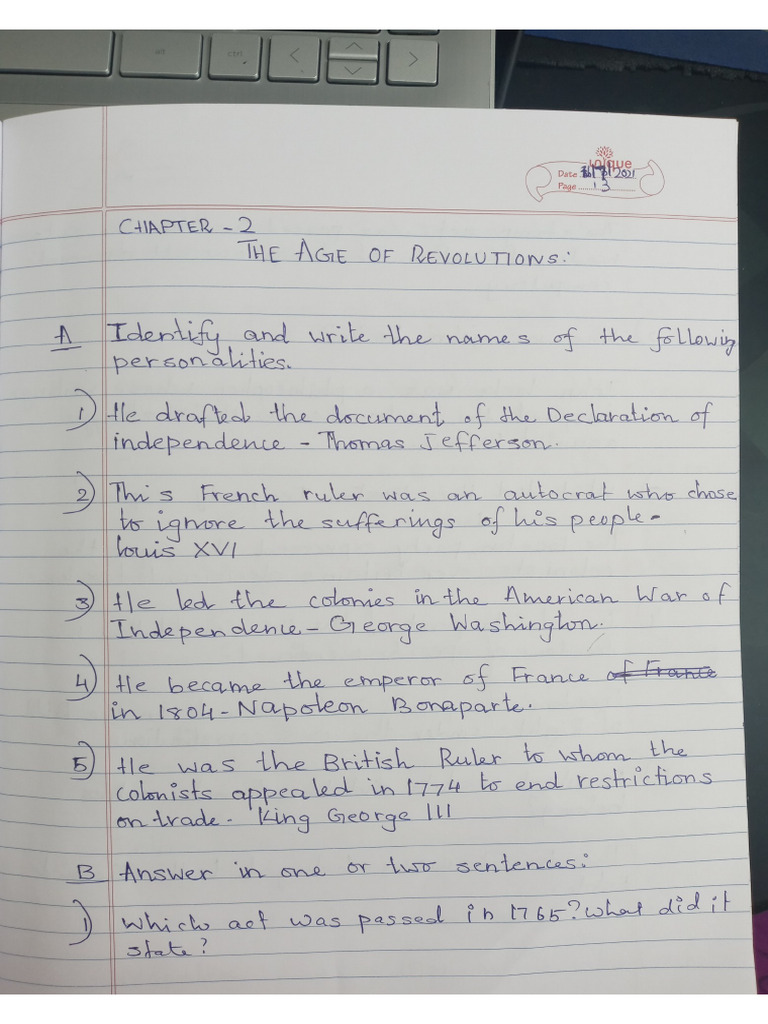 alt
ctrl
unique
Date 2021
Page 13
CHAPTER - 2
THE AGE OF REVOLUTIONS:
A Identify and write the names of the following
personalities.
1) He drafted the document of the Declaration of
independence - Thomas Jefferson.
2) This French ruler was an autocrat who chose
to ignore the sufferings of his people -
Louis XVI
3) He led the colonies in the American War of
Independence - George Washington.
4) He became the emperor of France of France
in 1804 - Napoleon Bonaparte.
5) He was the British Ruler to whom the
colonists appealed in 1774 to end restrictions
on trade - King George III
B Answer in one or two sentences:
1) Which act was passed in 1765? What did it
state?